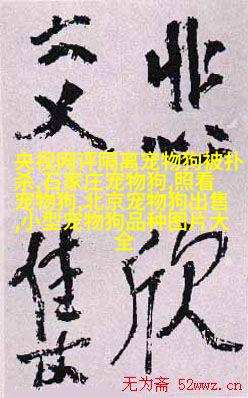 悲欣
交集
央视网评隔离宠物狗被扑
杀,石家庄宠物狗,照看
宠物狗,北京宠物狗出售
,小型宠物狗品种图片大
全
无为斋 52wwz.cn